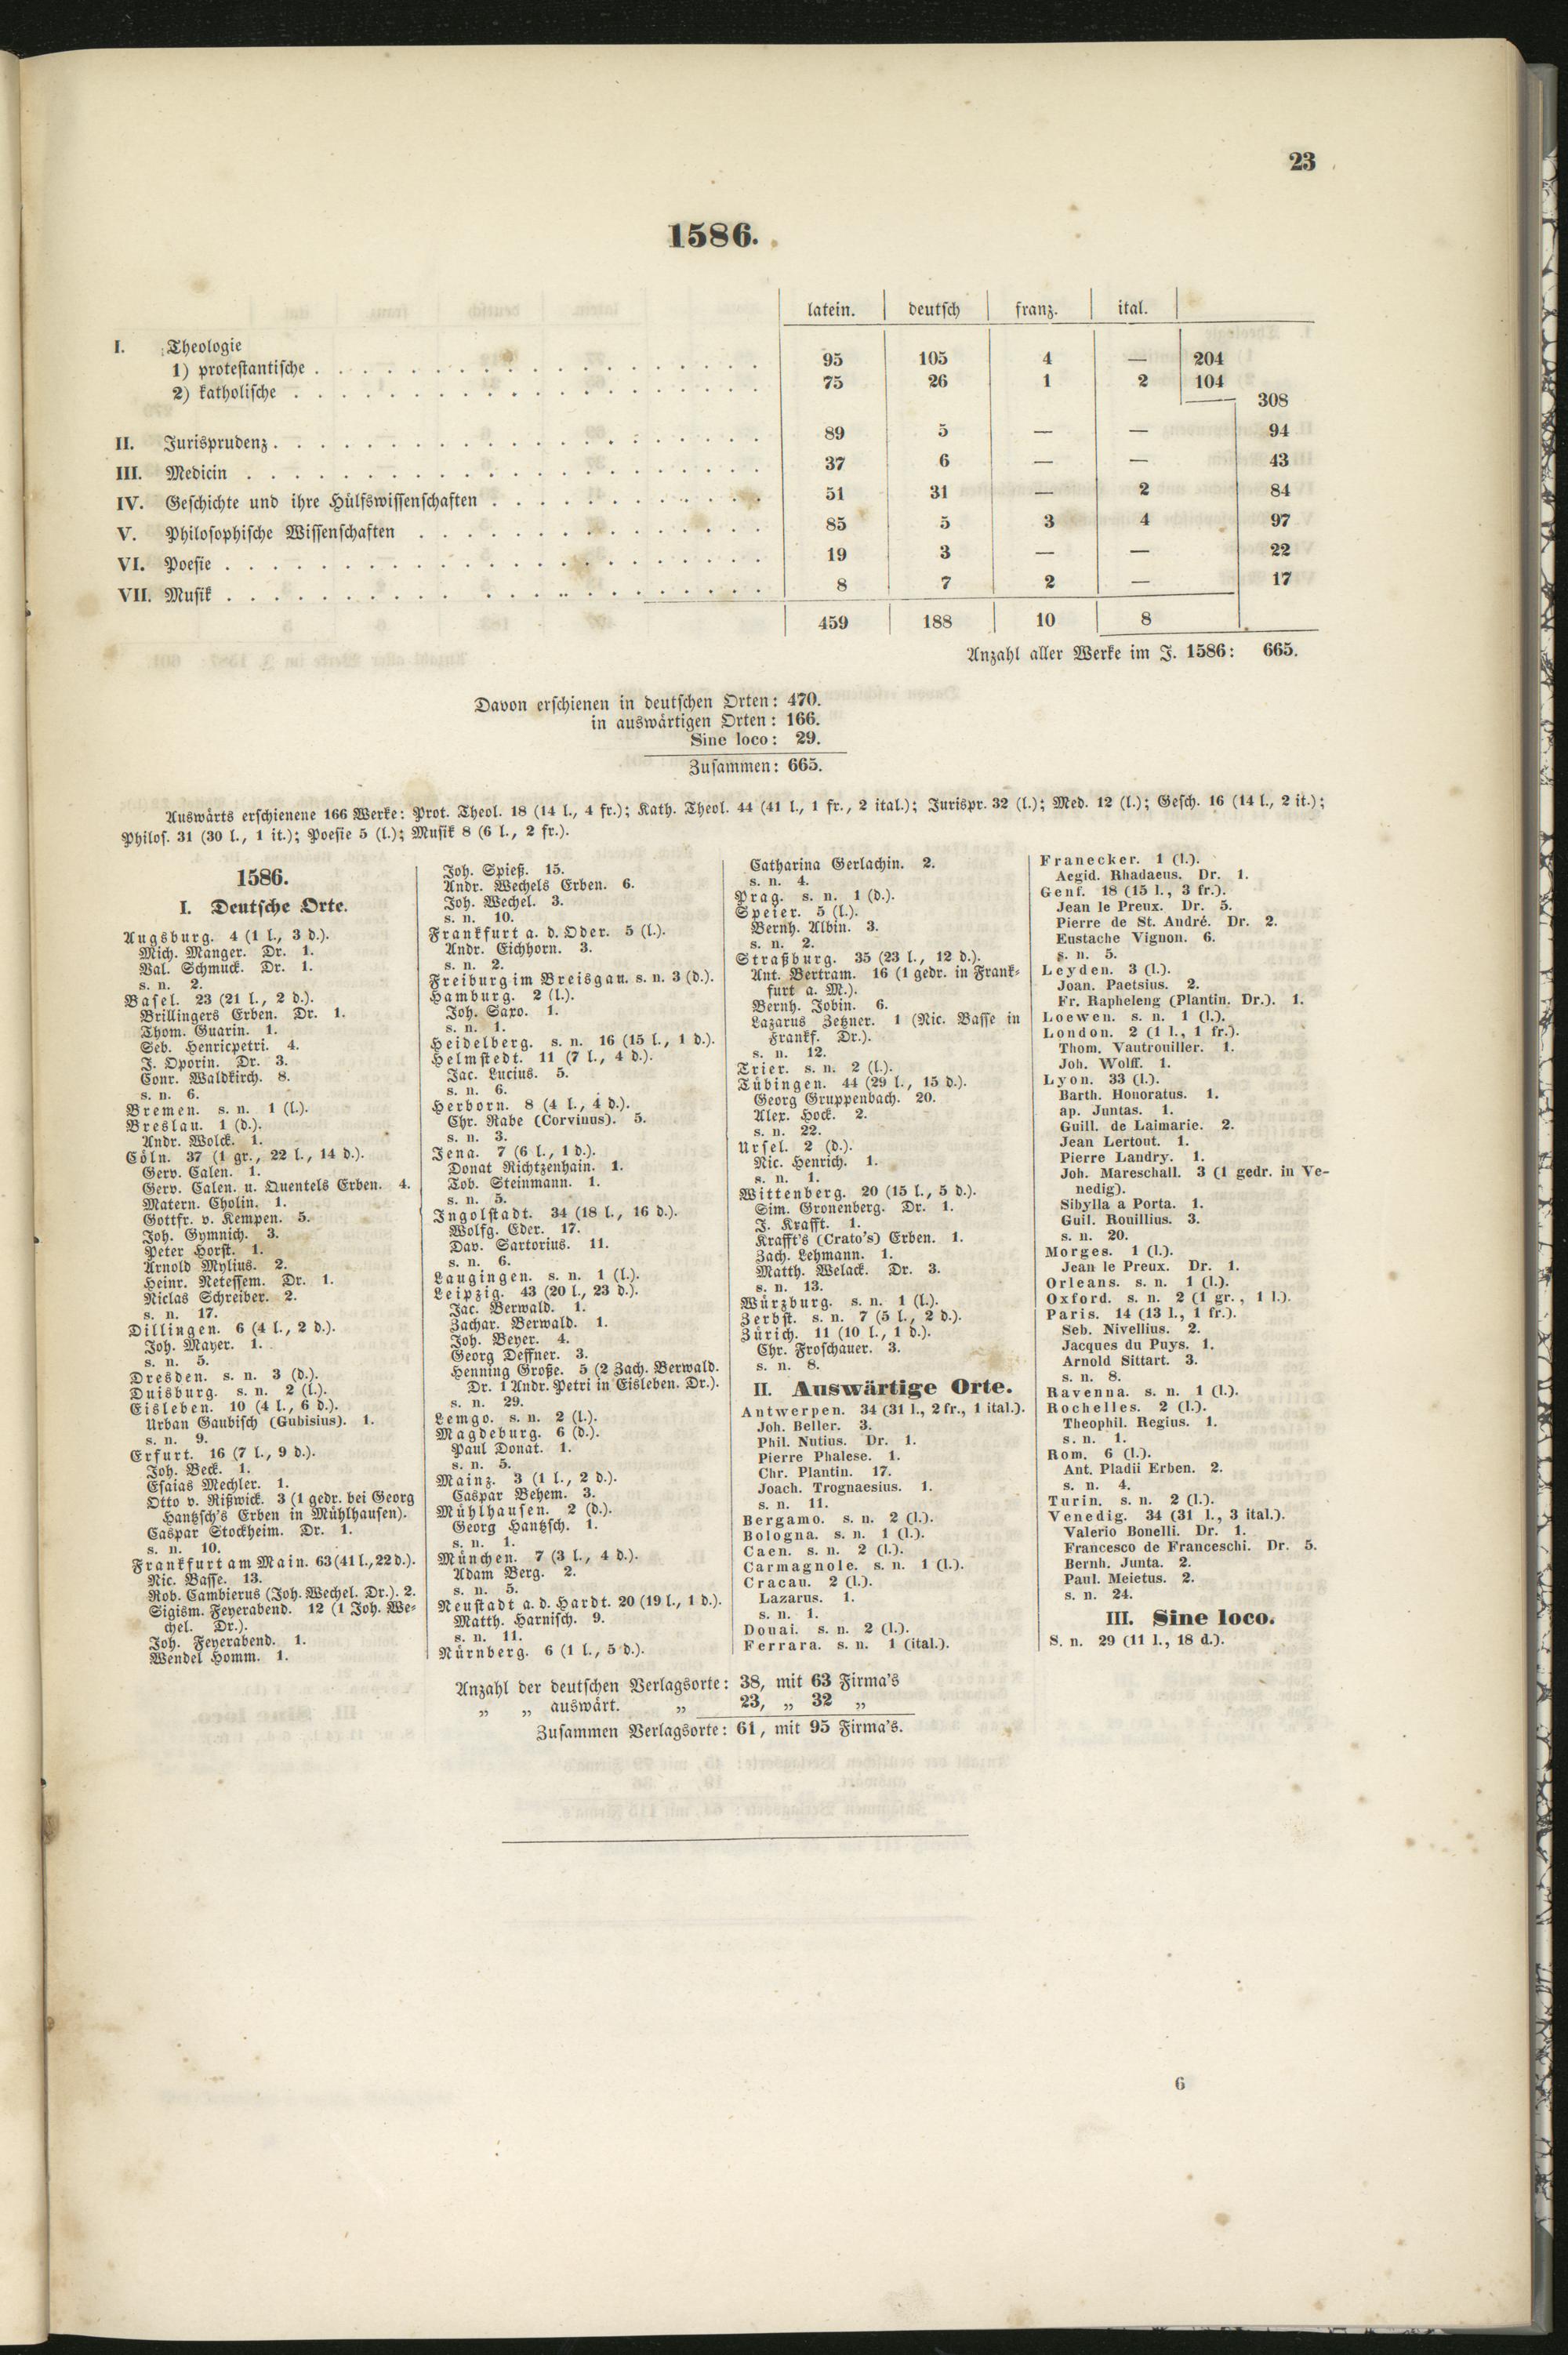 23
1586.
latein. deutsch franz. ital.
I. Theologie
1) protestantische . . . 95 105 4 — 204
2) katholische . . . 75 26 1 2 104
308
II. Jurisprudenz . . . 89 5 — — 94
III. Medicin . . . 37 6 — — 43
IV. Geschichte und ihre Hülfswissenschaften . . . 51 31 — 2 84
V. Philosophische Wissenschaften . . . 85 5 3 4 97
VI. Poesie . . . 19 3 — — 22
VII. Musik . . . 8 7 2 — 17
459 188 10 8
Anzahl aller Werke im J. 1586: 665.
Davon erschienen in deutschen Orten: 470.
in auswärtigen Orten: 166.
Sine loco: 29.
Zusammen: 665.
Auswärts erschienene 166 Werke: Prot. Theol. 18 (14 l., 4 fr.); Kath. Theol. 44 (41 l., 1 fr., 2 ital.); Jurispr. 32 (l.); Med. 12 (l.); Gesch. 16 (14 l., 2 it.);
Philos. 31 (30 l., 1 it.); Poesie 5 (l.); Musik 8 (6 l., 2 fr.).
1586.
I. Deutsche Orte.
Augsburg. 4 (1 l., 3 d.).
Mich. Manger. Dr. 1.
Val. Schmuck. Dr. 1.
s. n. 2.
Basel. 23 (21 l., 2 d.).
Brillingers Erben. Dr. 1.
Thom. Guarin. 1.
Seb. Henricpetri. 4.
J. Oporin. Dr. 3.
Conr. Waldkirch. 8.
s. n. 6.
Bremen. s. n. 1 (l.).
Breslau. 1 (d.).
Andr. Wolck. 1.
Cöln. 37 (1 gr., 22 l., 14 d.).
Gerv. Calen. 1.
Gerv. Calen. u. Quentels Erben. 4.
Matern. Cholin. 1.
Gottfr. v. Kempen. 5.
Joh. Gymnich. 3.
Peter Horst. 1.
Arnold Mylius. 2.
Heinr. Netessem. Dr. 1.
Niclas Schreiber. 2.
s. n. 17.
Dillingen. 6 (4 l., 2 d.).
Joh. Mayer. 1.
s. n. 5.
Dresden. s. n. 3 (d.).
Duisburg. s. n. 2 (l.).
Eisleben. 10 (4 l., 6 d.).
Urban Gaubisch (Gubisius). 1.
s. n. 9.
Erfurt. 16 (7 l., 9 d.).
Joh. Beck. 1.
Esaias Mechler. 1.
Otto v. Rißwick. 3 (1 gedr. bei Georg
Hantzsch's Erben in Mühlhausen).
Caspar Stockheim. Dr. 1.
s. n. 10.
Frankfurt am Main. 63 (41 l., 22 d.).
Nic. Basse. 13.
Rob. Cambierus (Joh. Wechel. Dr.). 2.
Sigism. Feyerabend. 12 (1 Joh. We-
chel. Dr.).
Joh. Feyerabend. 1.
Wendel Homm. 1.
Joh. Spieß. 15.
Andr. Wechels Erben. 6.
Joh. Wechel. 3.
s. n. 10.
Frankfurt a. d. Oder. 5 (l.).
Andr. Eichhorn. 3.
s. n. 2.
Freiburg im Breisgau. s. n. 3 (d.).
Hamburg. 2 (l.).
Joh. Saxo. 1.
s. n. 1.
Heidelberg. s. n. 16 (15 l., 1 d.).
Helmstedt. 11 (7 l., 4 d.).
Jac. Lucius. 5.
s. n. 6.
Herborn. 8 (4 l., 4 d.).
Chr. Rabe (Corvinus). 5.
s. n. 3.
Jena. 7 (6 l., 1 d.).
Donat Richtzenhain. 1.
Tob. Steinmann. 1.
s. n. 5.
Ingolstadt. 34 (18 l., 16 d.).
Wolfg. Eder. 17.
Dav. Sartorius. 11.
s. n. 6.
Laugingen. s. n. 1 (l.).
Leipzig. 43 (20 l., 23 d.).
Jac. Berwald. 1.
Zachar. Berwald. 1.
Joh. Beyer. 4.
Georg Deffner. 3.
Henning Große. 5 (2 Zach. Berwald.
Dr. 1 Andr. Petri in Eisleben. Dr.).
s. n. 29.
Lemgo. s. n. 2 (l.).
Magdeburg. 6 (d.).
Paul Donat. 1.
s. n. 5.
Mainz. 3 (1 l., 2 d.).
Caspar Behem. 3.
Mühlhausen. 2 (d.).
Georg Hantzsch. 1.
s. n. 1.
München. 7 (3 l., 4 d.).
Adam Berg. 2.
s. n. 5.
Neustadt a. d. Hardt. 20 (19 l., 1 d.).
Matth. Harnisch. 9.
s. n. 11.
Nürnberg. 6 (1 l., 5 d.).
Catharina Gerlachin. 2.
s. n. 4.
Prag. s. n. 1 (d.).
Speier. 5 (l.).
Bernh. Albin. 3.
s. n. 2.
Straßburg. 35 (23 l., 12 d.).
Ant. Bertram. 16 (1 gedr. in Frank-
furt a. M.).
Bernh. Jobin. 6.
Lazarus Zetzner. 1 (Nic. Basse in
Frankf. Dr.).
s. n. 12.
Trier. s. n. 2 (l.).
Tübingen. 44 (29 l., 15 d.).
Georg Gruppenbach. 20.
Alex. Hock. 2.
s. n. 22.
Ursel. 2 (d.).
Nic. Henrich. 1.
s. n. 1.
Wittenberg. 20 (15 l., 5 d.).
Sim. Gronenberg. Dr. 1.
J. Krafft. 1.
Krafft's (Crato's) Erben. 1.
Zach. Lehmann. 1.
Matth. Welack. Dr. 3.
s. n. 13.
Würzburg. s. n. 1 (l.).
Zerbst. s. n. 7 (5 l., 2 d.).
Zürich. 11 (10 l., 1 d.).
Chr. Froschauer. 3.
s. n. 8.
II. Auswärtige Orte.
Antwerpen. 34 (31 l., 2 fr., 1 ital.).
Joh. Beller. 3.
Phil. Nutius. Dr. 1.
Pierre Phalese. 1.
Chr. Plantin. 17.
Joach. Trognaesius. 1.
s. n. 11.
Bergamo. s. n. 2 (l.).
Bologna. s. n. 1 (l.).
Caen. s. n. 2 (l.).
Carmagnole. s. n. 1 (l.).
Cracau. 2 (l.).
Lazarus. 1.
s. n. 1.
Douai. s. n. 2 (l.).
Ferrara. s. n. 1 (ital.).
Franecker. 1 (l.).
Aegid. Rhadaeus. Dr. 1.
Genf. 18 (15 l., 3 fr.).
Jean le Preux. Dr. 5.
Pierre de St. André. Dr. 2.
Eustache Vignon. 6.
s. n. 5.
Leyden. 3 (l.).
Joan. Paetsius. 2.
Fr. Rapheleng (Plantin. Dr.). 1.
Loewen. s. n. 1 (l.).
London. 2 (1 l., 1 fr.).
Thom. Vautrouiller. 1.
Joh. Wolff. 1.
Lyon. 33 (l.).
Barth. Honoratus. 1.
ap. Juntas. 1.
Guill. de Laimarie. 2.
Jean Lertout. 1.
Pierre Landry. 1.
Joh. Mareschall. 3 (1 gedr. in Ve-
nedig).
Sibylla a Porta. 1.
Guil. Rouillius. 3.
s. n. 20.
Morges. 1 (l.).
Jean le Preux. Dr. 1.
Orleans. s. n. 1 (l.).
Oxford. s. n. 2 (1 gr., 1 l.).
Paris. 14 (13 l., 1 fr.).
Seb. Nivellius. 2.
Jacques du Puys. 1.
Arnold Sittart. 3.
s. n. 8.
Ravenna. s. n. 1 (l.).
Rochelles. 2 (l.).
Theophil. Regius. 1.
s. n. 1.
Rom. 6 (l.).
Ant. Pladii Erben. 2.
s. n. 4.
Turin. s. n. 2 (l.).
Venedig. 34 (31 l., 3 ital.).
Valerio Bonelli. Dr. 1.
Francesco de Franceschi. Dr. 5.
Bernh. Junta. 2.
Paul. Meietus. 2.
s. n. 24.
III. Sine loco.
S. n. 29 (11 l., 18 d.).
Anzahl der deutschen Verlagsorte: 38, mit 63 Firma's
„ „ auswärt. „ 23, „ 32 „
Zusammen Verlagsorte: 61, mit 95 Firma's.
6